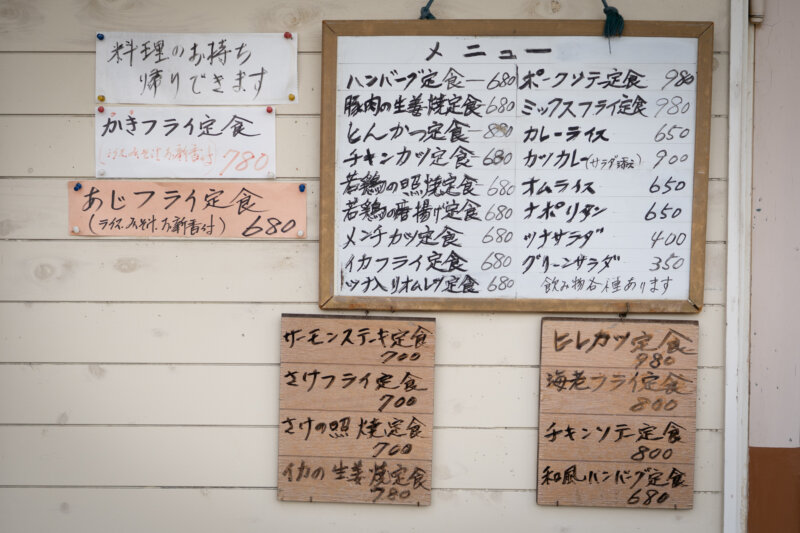 料理のお持ち
帰りできます
かきフライ定食
(ライス、みそ汁、お新香付) 780
あじフライ定食
(ライス、みそ汁、お新香付) 680
メニュー
ハンバーグ定食 680
豚肉の生姜焼定食 680
とんかつ定食 880
チキンカツ定食 680
若鶏の照焼定食 680
若鶏の唐揚げ定食 680
メンチカツ定食 680
イカフライ定食 680
ツナ入りオムレツ定食 680
ポークソテー定食 980
ミックスフライ定食 980
カレーライス 650
カツカレー(サラダ添え) 900
オムライス 650
ナポリタン 650
ツナサラダ 400
グリーンサラダ 350
飲み物各種あります
サーモンステーキ定食
700
さけフライ定食
700
さけの照焼定食
700
イカの生姜焼定食
780
ヒレカツ定食
980
海老フライ定食
800
チキンソテー定食
800
和風ハンバーグ定食
680